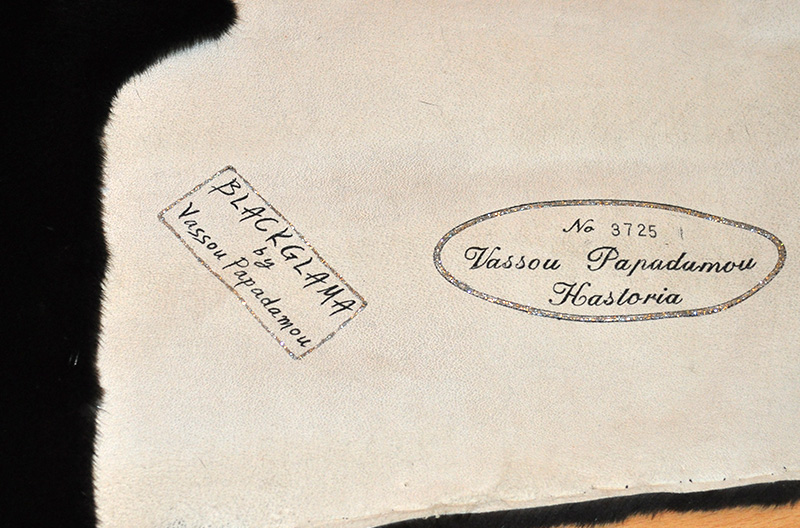 BLACKGLAMA
by
Vassou Papadamou
No 3725
Vassou Papadamou
Kastoria